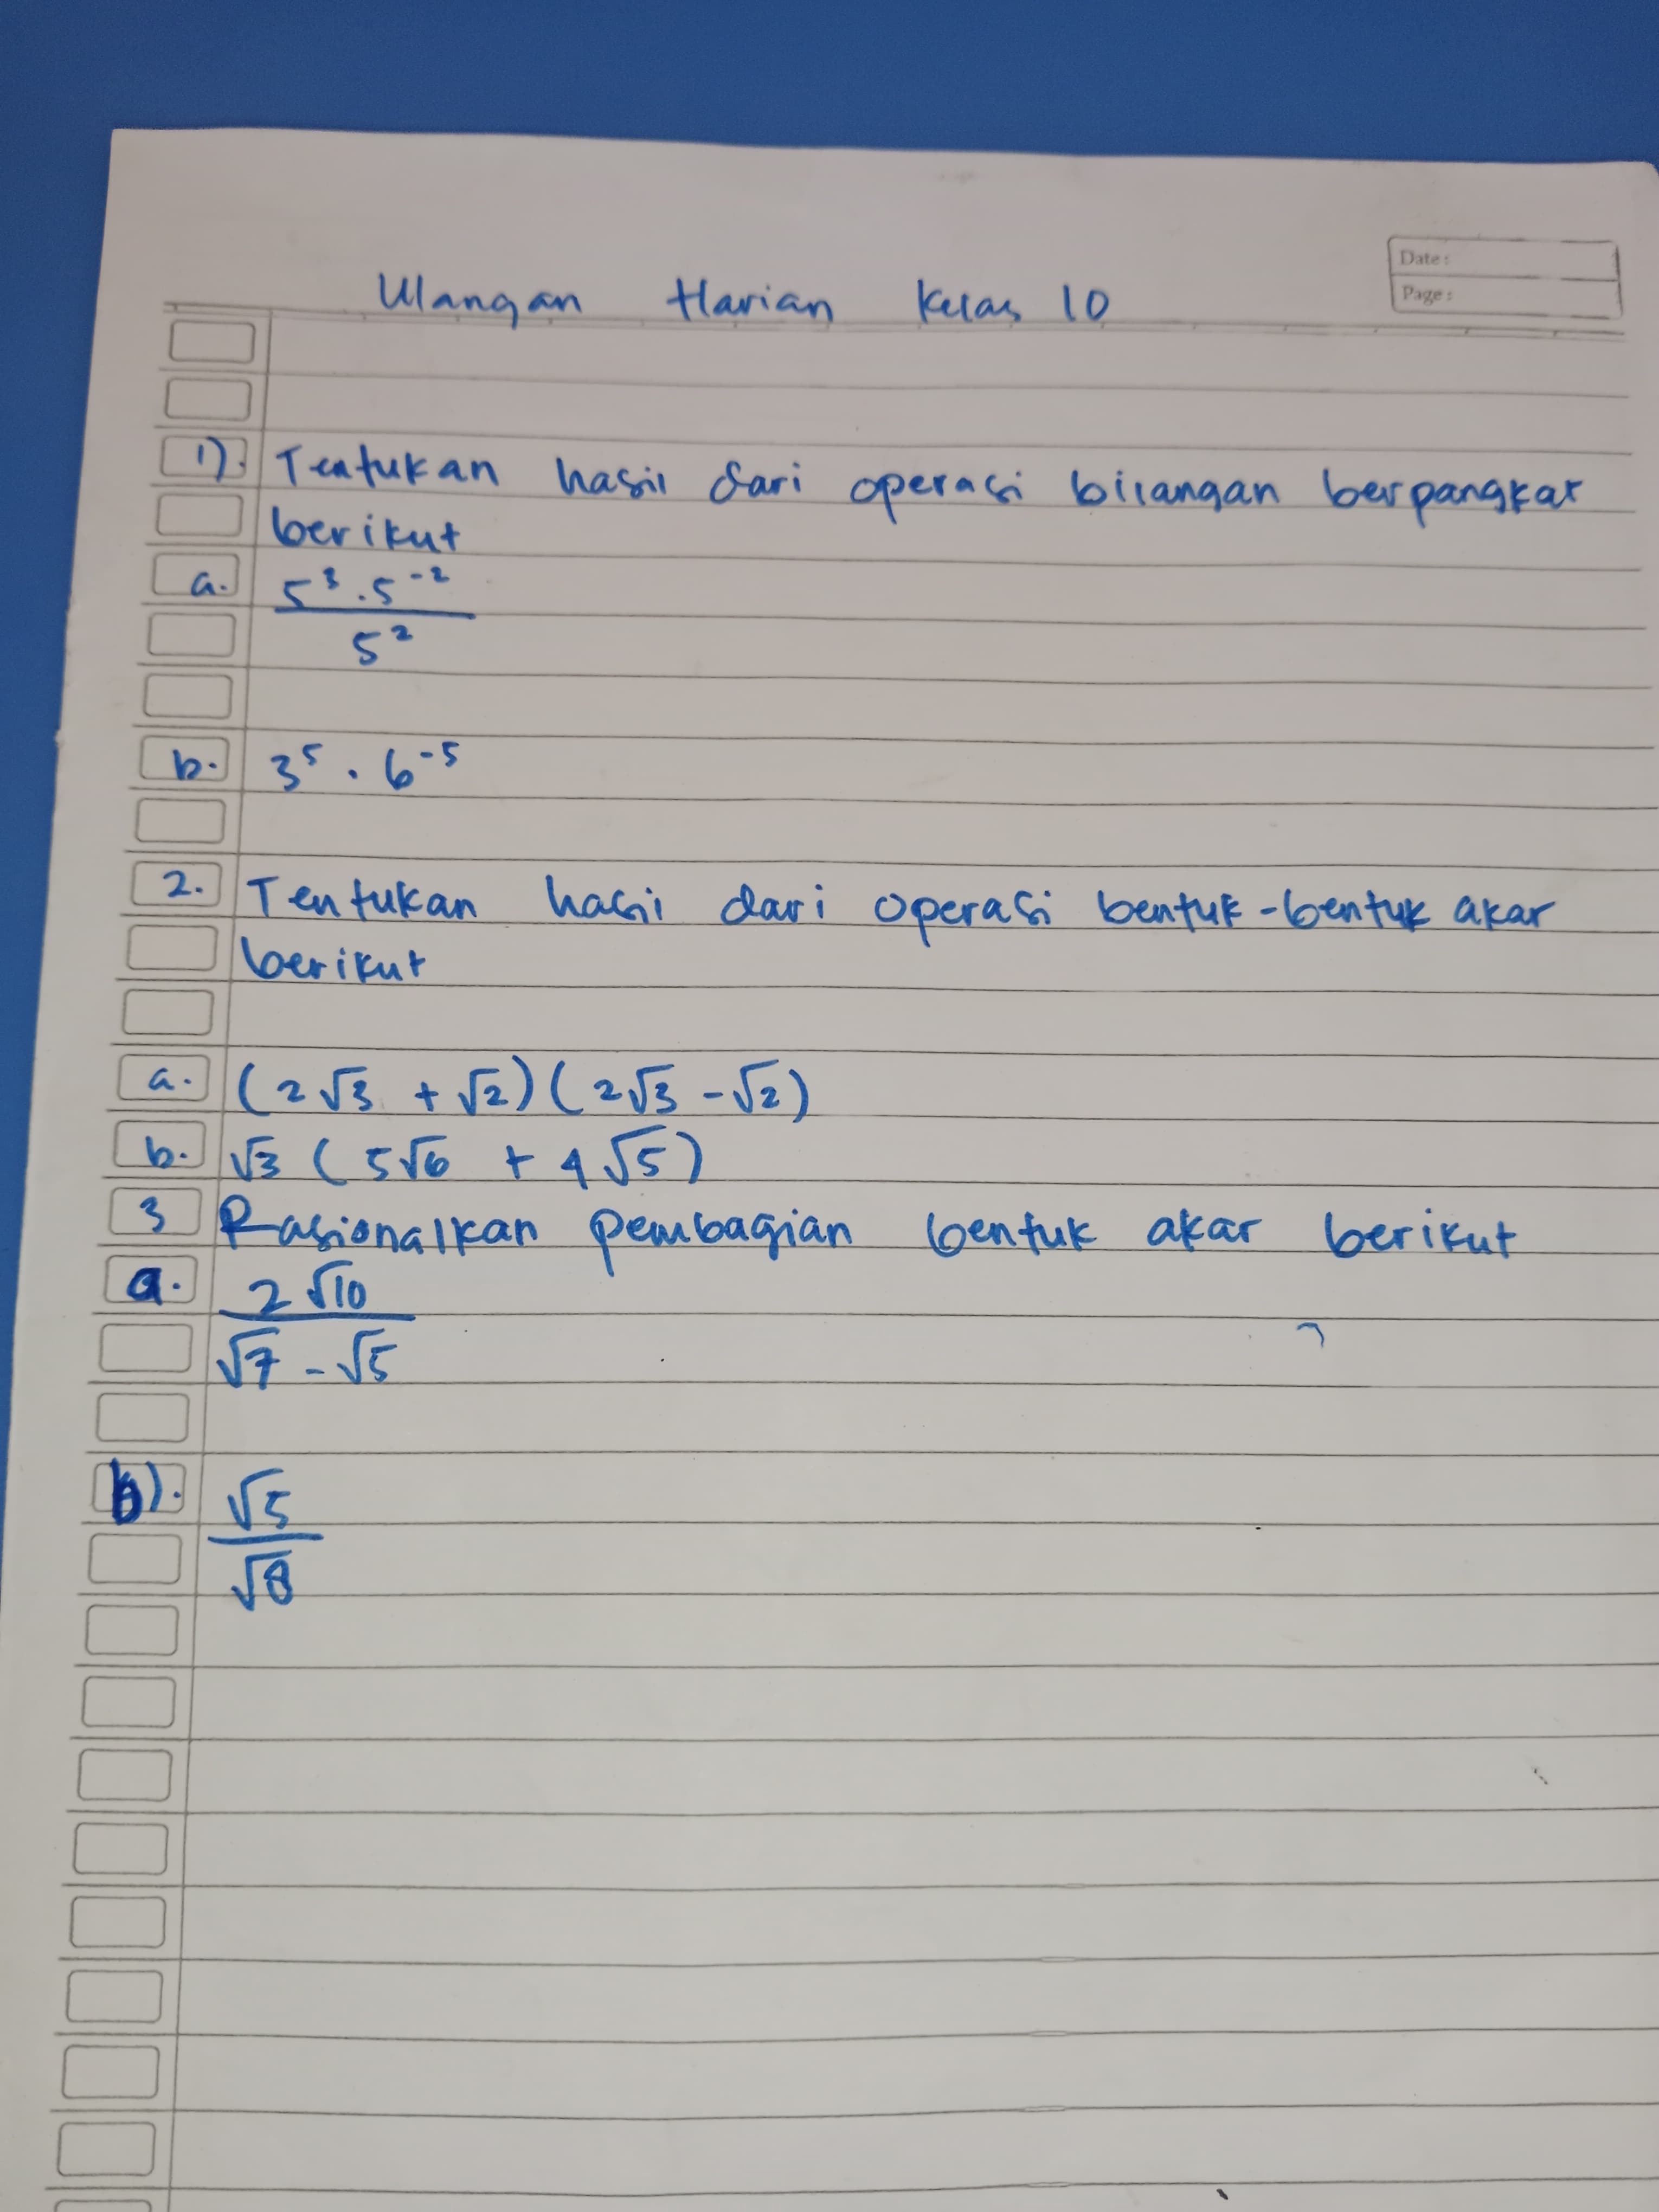 Date:
Page:
Ulangan Harian Kelas 10
1). Tentukan hasil dari operasi bilangan berpangkat
berikut
a. 5³ . 5⁻²
5²
b. 3⁵ . 6⁻⁵
2. Tentukan hasil dari operasi bentuk-bentuk akar
berikut
a. (2√3 + √2)(2√3 - √2)
b. √3 (5√6 + 4√5)
3 Rasionalkan pembagian bentuk akar berikut
a. 2√10
√7 - √5
b). √5
√8